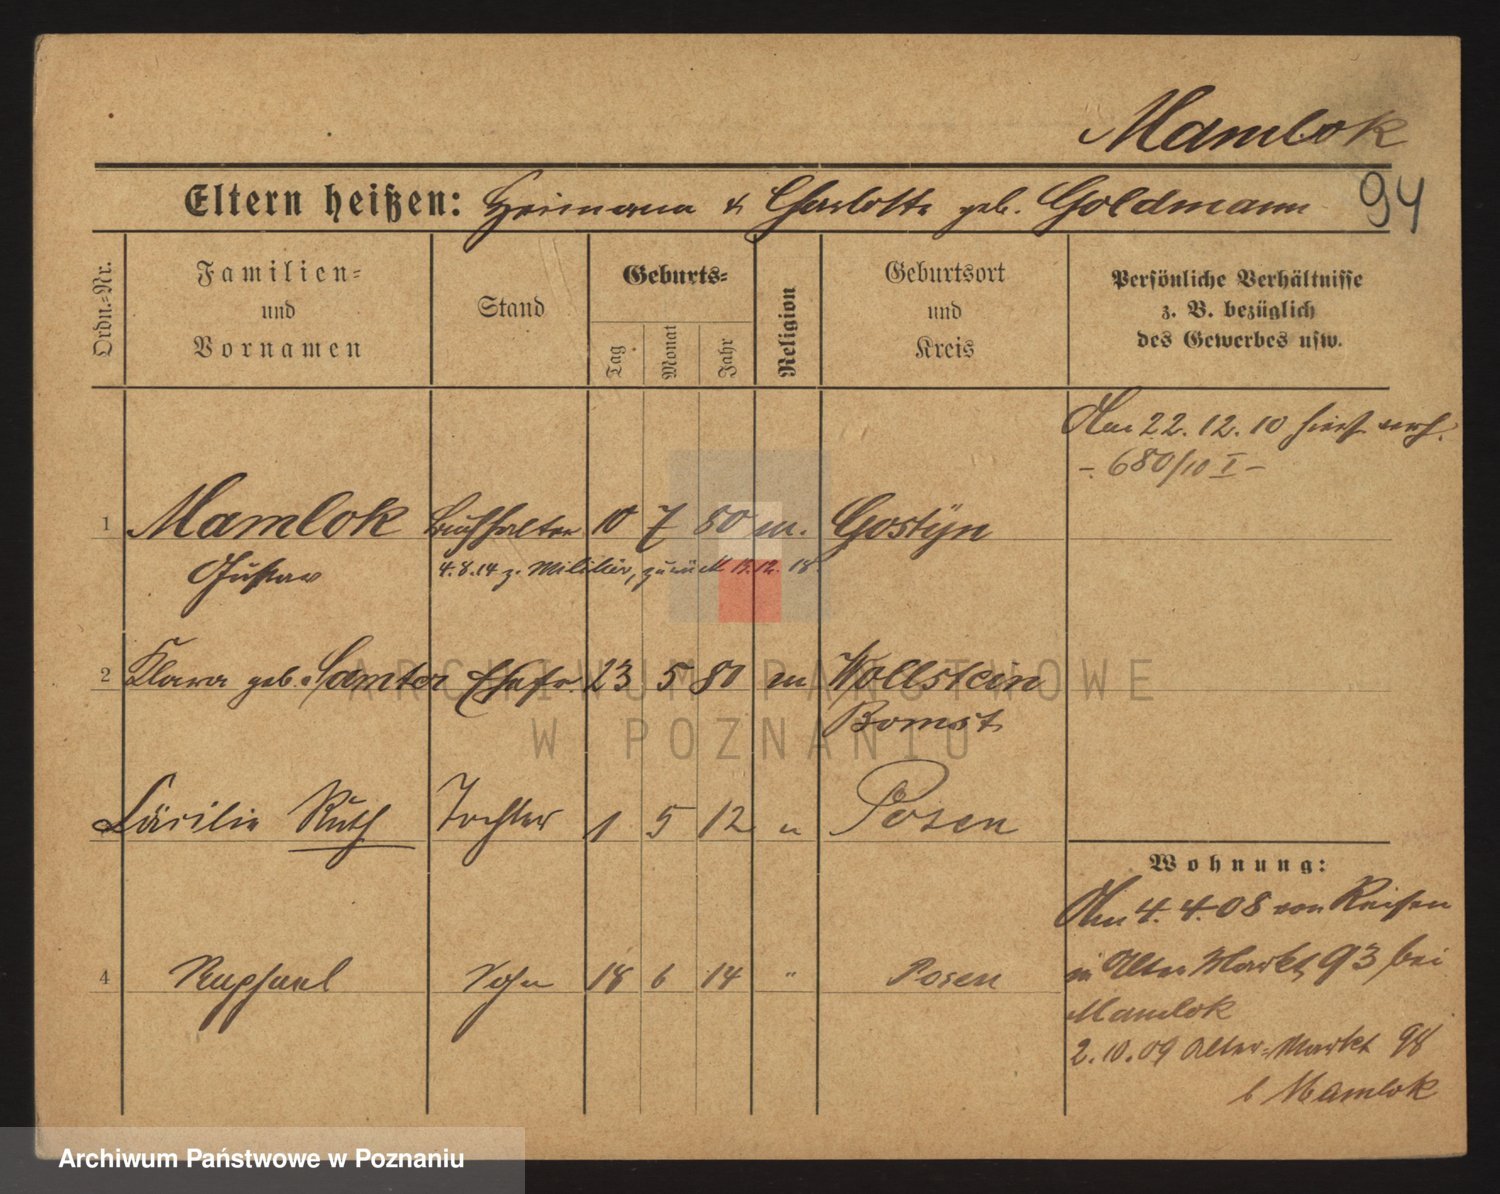 Mamlok
Eltern heißen: Heimann & Charlotte geb. Goldmann
94
Ordn.-Nr.
Familien-
und
Vornamen
Stand
Geburts-
Tag
Monat
Jahr
Religion
Geburtsort
und
Kreis
Persönliche Verhältnisse
z. B. bezüglich
des Gewerbes usw.
Am 22. 12. 10 hier
- 680/10 I -
1 Mamlok Buchhalter 10 7 80 m. Gostÿn
Gustav
4.8.14 z. Militär, zurück 13.12. 18.
2 Klara geb. Samter Ehefr. 23 5 80 m Wollstein
Bomst
Cäcilie Ruth Tochter 1 5 12 " Posen
4 Raphael Sohn 18 6 14 " Posen
Wohnung:
Am 4. 4. 08 von Reisen
in Alter Markt 93 bei
Mamlok
2. 10. 09 Alter-Markt 98
b Mamlok
ARCHIWUM PAŃSTWOWE
W POZNANIU
Archiwum Państwowe w Poznaniu